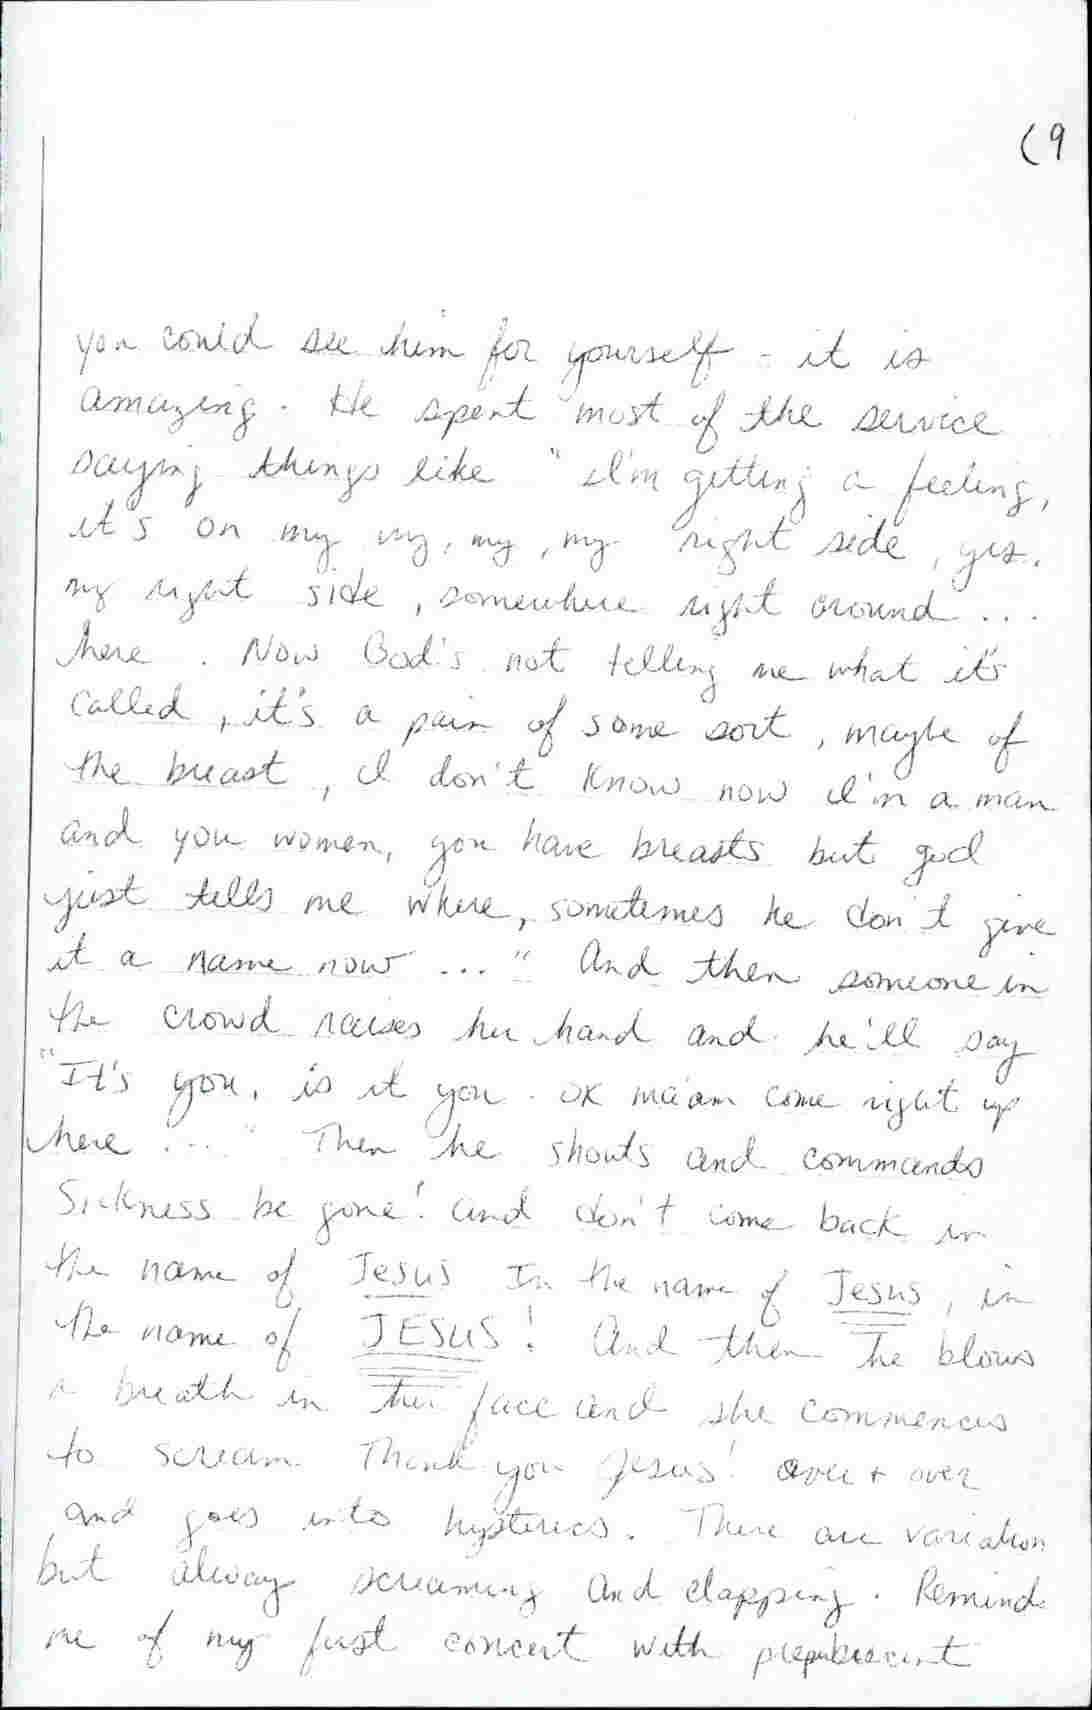 (9
you could see him for yourself - it is
amazing. He spent most of the service
saying things like "I'm getting a feeling,
it's on my my, my, my right side, yes.
my right side, somewhere right around ...
here. Now God's not telling me what it's
called, it's a pain of some sort, maybe of
the breast, I don't know now I'm a man
and you women, you have breasts but god
just tells me where, sometimes he don't give
it a name now ..." And then someone in
the crowd raises her hand and he'll say
"It's you, is it you. OK ma'am come right up
here ...." Then he shouts and commands
Sickness be gone! and don't come back in
the name of Jesus In the name of Jesus, in
the name of JESUS! And then he blows
a breath in her face and she commences
to scream Thank you Jesus! over + over
and goes into hysterics. There are variation
but always screaming and clapping. Remind
me of my first concert with prepubescent